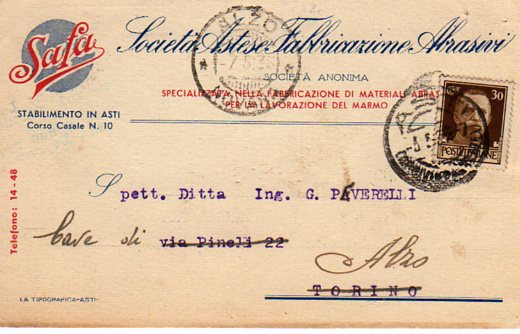 Safa
Società Astese Fabbricazione Abrasivi
SOCIETÀ ANONIMA
SPECIALIZZATA NELLA FABBRICAZIONE DI MATERIALE ABRAS
PER LA LAVORAZIONE DEL MARMO
STABILIMENTO IN ASTI
Corso Casale N. 10
30
POSTE ITALIANE
Telefono: 14-48
Spett. Ditta Ing. G. PAVERELLI
Cave di via Pineli 22
Alzo
TORINO
LA TIPOGRAFICA-ASTI